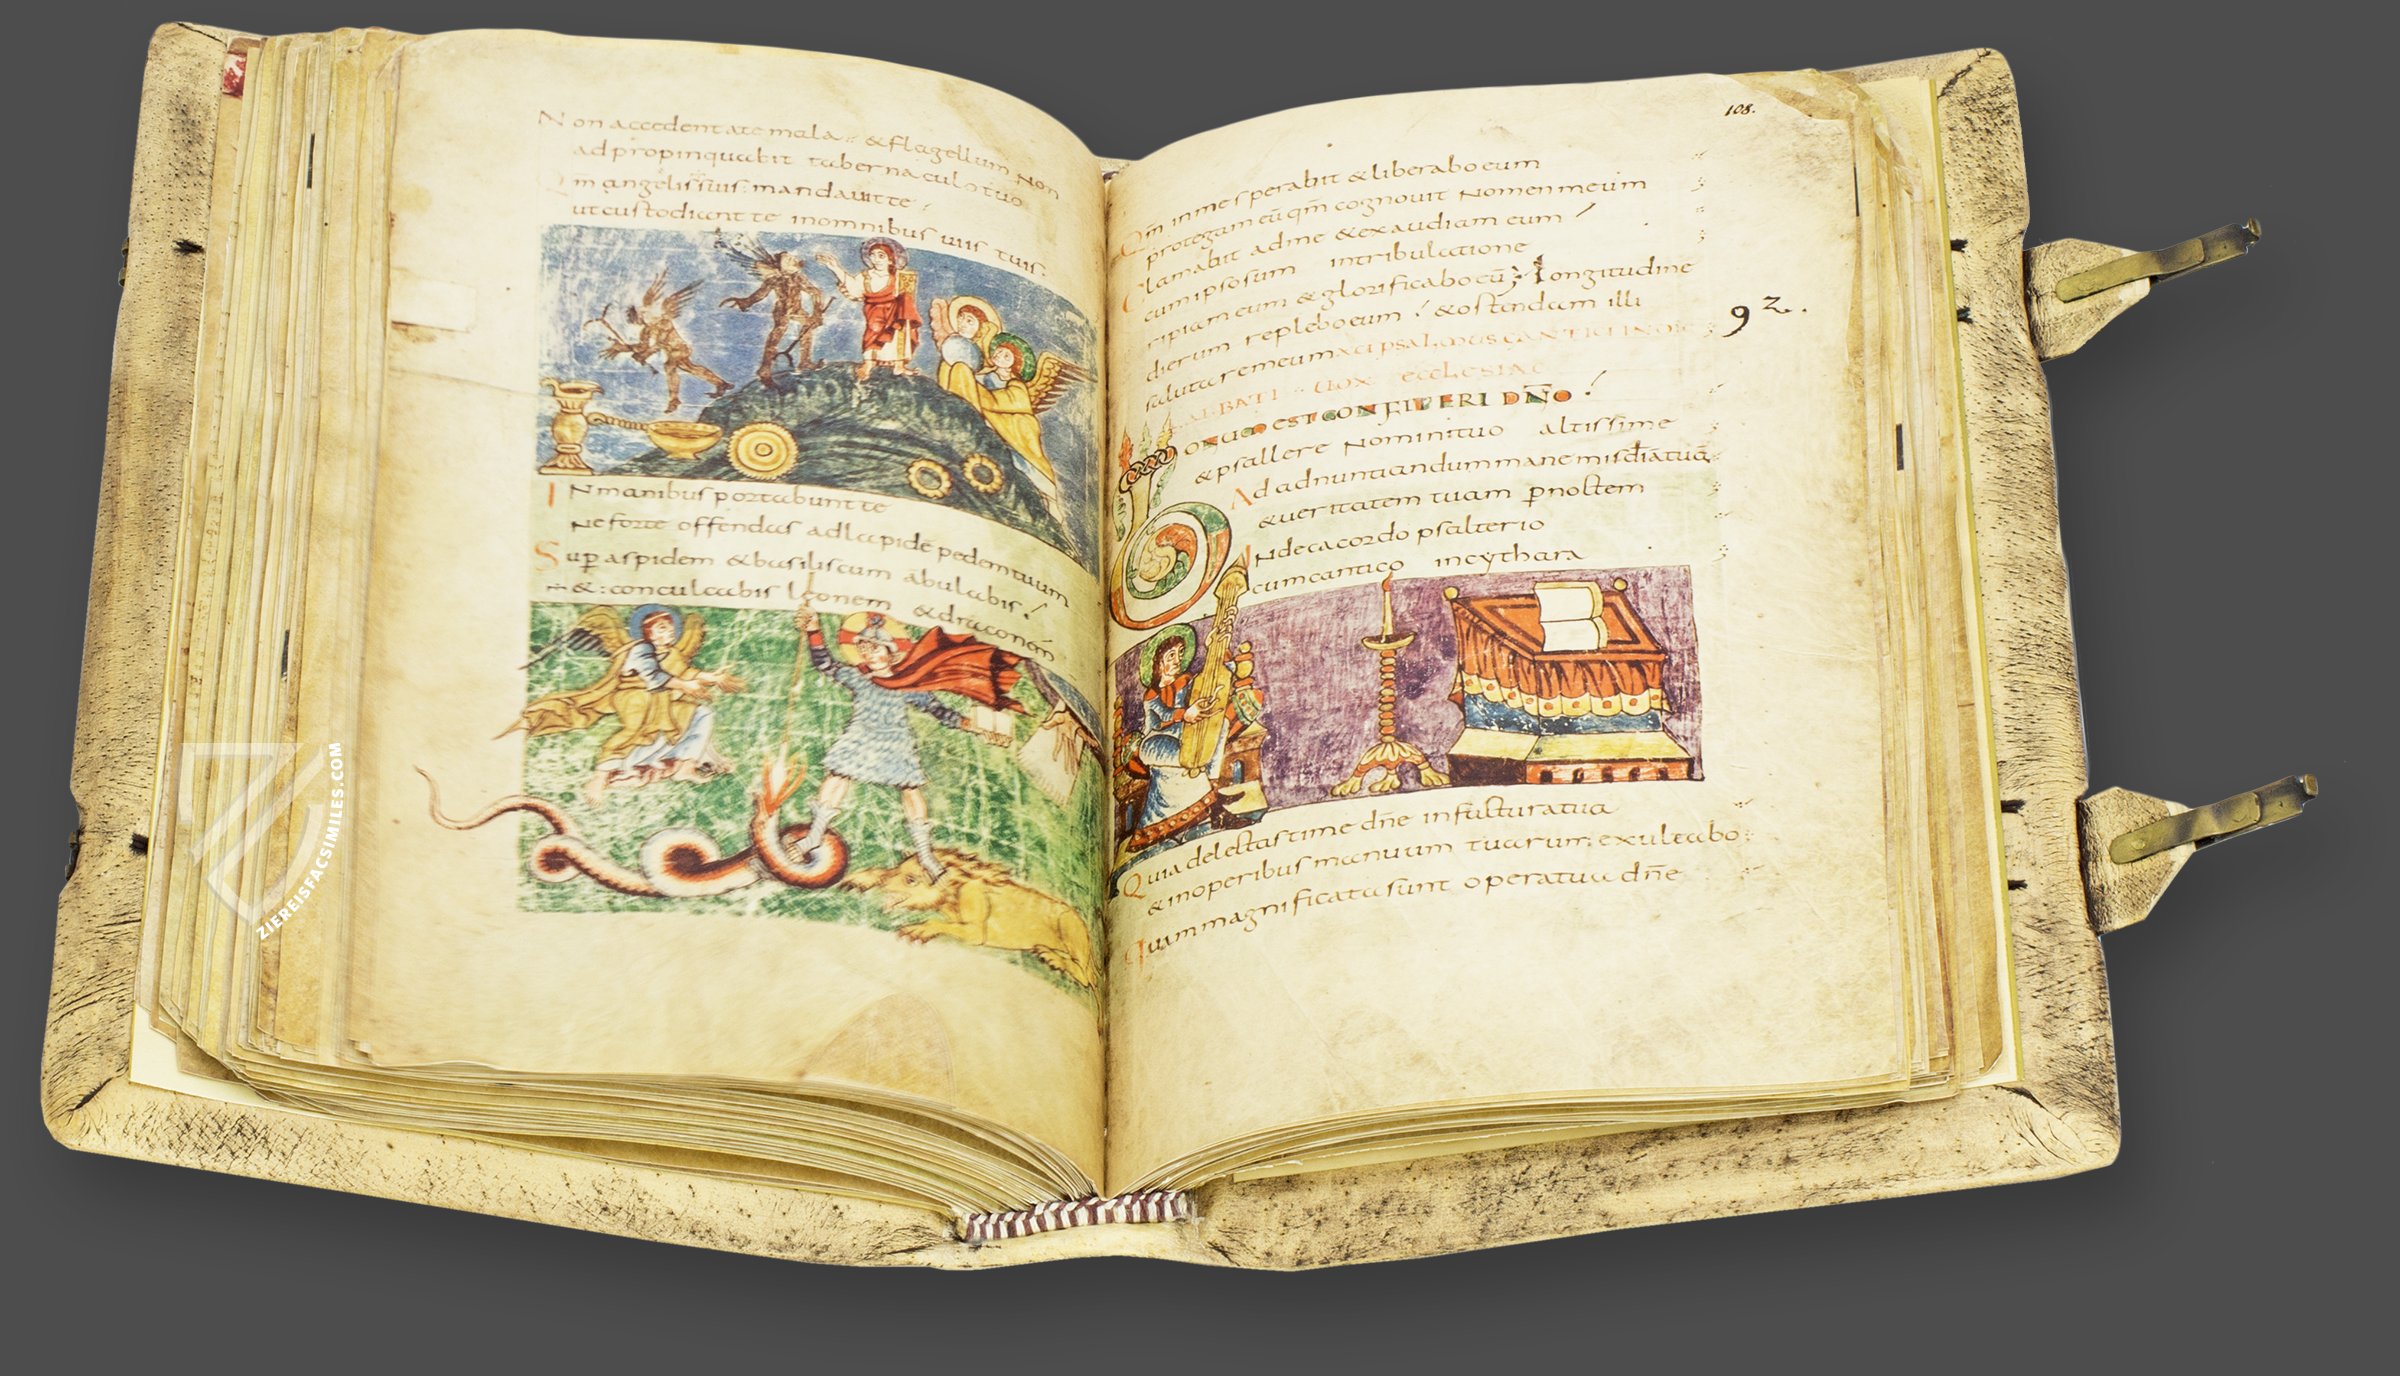 Non accedent ate mala & flagellum non
adpropinquabit tabernaculo tuo
Qm angelis suis mandavit te
ut custodiant te inomnibus uiis tuis:
INmanibus portabunt te
Neforte offendas adlapidē pedemtuum
Sup aspidem & basiliscum ābulabis!
& conculcabis leonem & draconem
108.
Qm inmesperabit & liberaboeum
protegam eū qm cognouit Nomenmeum
Clamabit adme & exaudiam eum
cumipsosum intribulatione
eripiam eum & glorificaboeū; Longitudine
dierum repleboeum & ostendam illi
salutaremeum xci psalmus cantici indie
92.
sabbati uox ecclesiae
BONUM EST CONFITERI DN̄O!
& psallere Nominituo altissime
Ad adnuntiandum mane misdiātuā
& ueritatem tuam p̄noctem
INdecacordo psalterio
cumcantico incythara
Quia delectastime dn̄e infacturatua
& inoperibus manuum tuarum exultabo
Quam magnificatasunt operatua dn̄e
ZIEREISFACSIMILES.COM